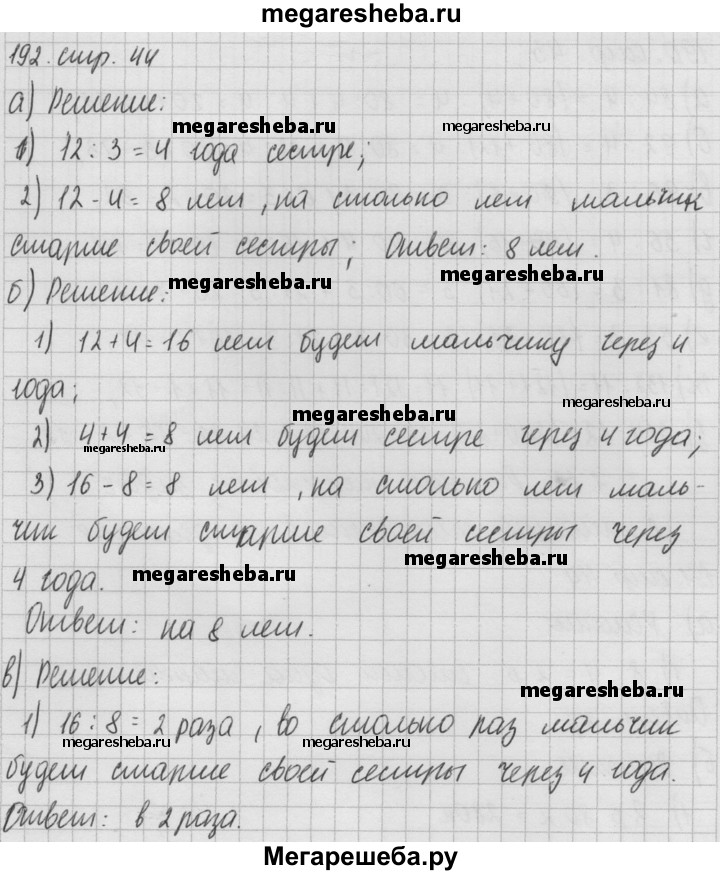 megaresheba.ru
192. стр. 44
а) Решение:
megaresheba.ru megaresheba.ru
1) 12 : 3 = 4 года сестре;
2) 12 - 4 = 8 лет, на столько лет мальчик
старше своей сестры; Ответ: 8 лет.
megaresheba.ru megaresheba.ru
б) Решение:
1) 12+4=16 лет будет мальчику через 4
года;
megaresheba.ru megaresheba.ru
2) 4+4 = 8 лет будет сестре через 4 года;
megaresheba.ru
3) 16 - 8 = 8 лет, на столько лет маль-
чик будет старше своей сестры через
megaresheba.ru
4 года.
megaresheba.ru
Ответ: на 8 лет.
в) Решение:
megaresheba.ru
1) 16 : 8 = 2 раза, во столько раз мальчик
megaresheba.ru megaresheba.ru
будет старше своей сестры через 4 года.
Ответ: в 2 раза.
Мегарешеба.ру